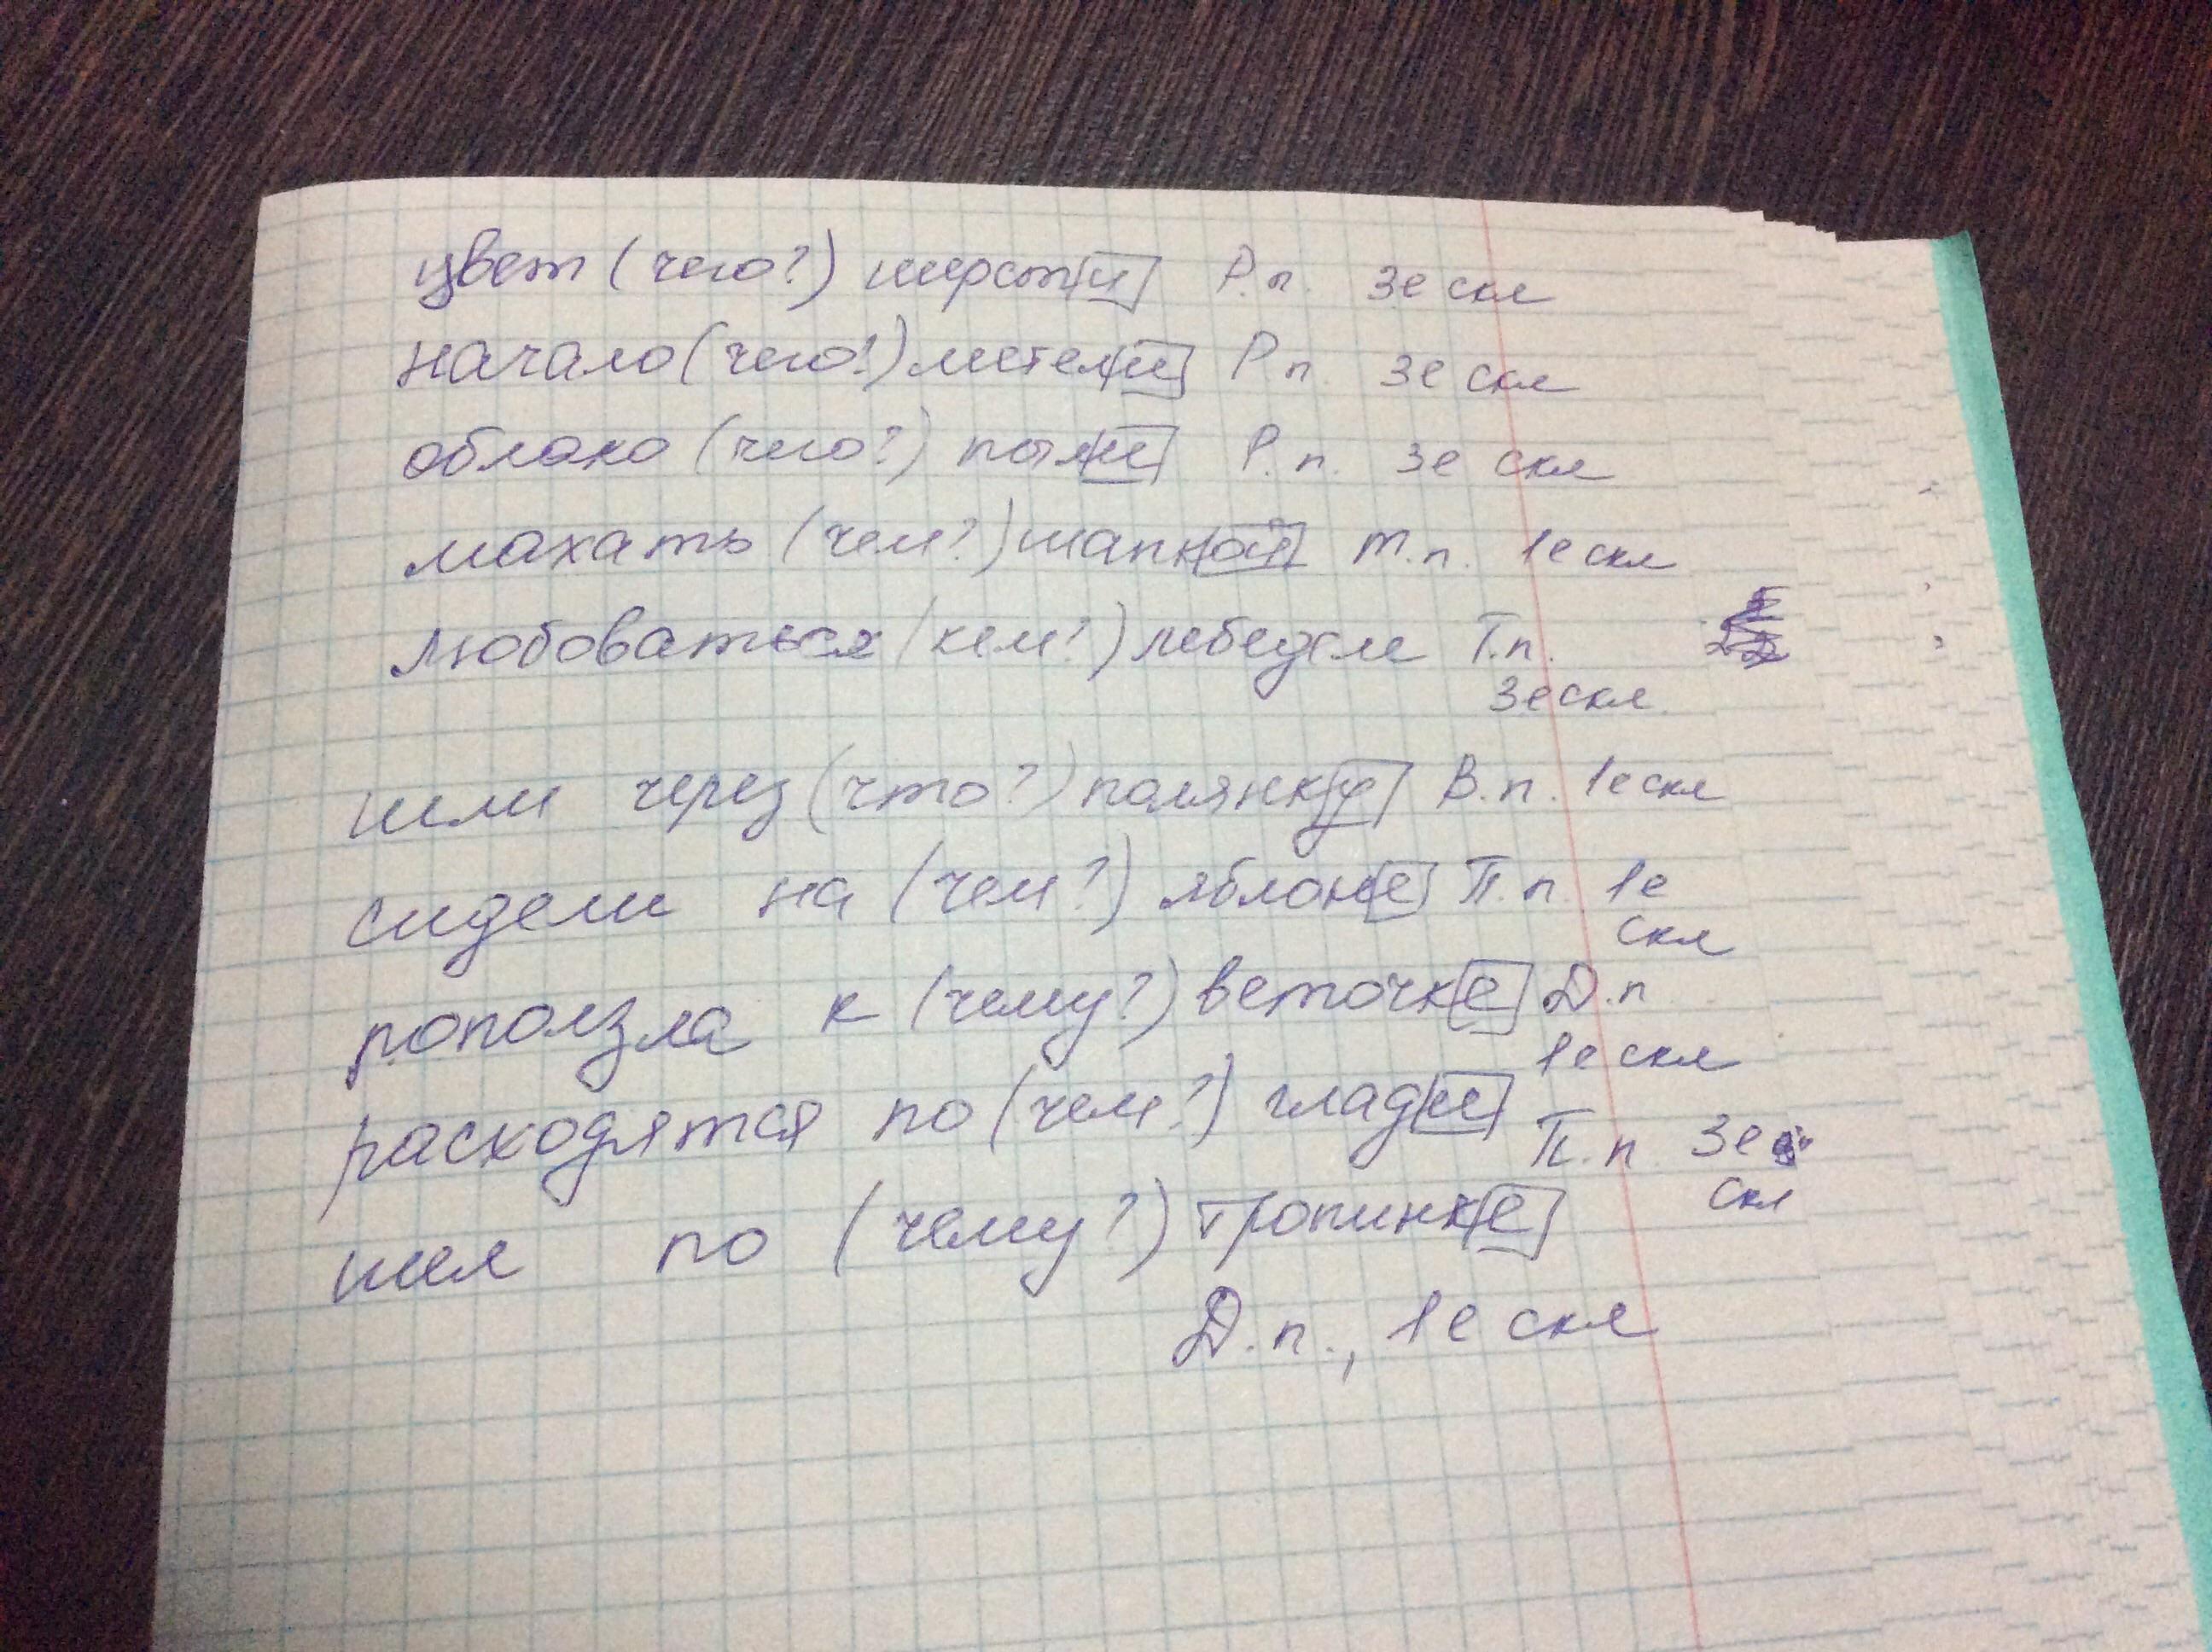 цвет (чего?) шерсти Р.п. 3е скл
начало (чего?) метели Р.п. 3е скл
облако (чего?) пыли Р.п. 3е скл
махать (чем?) шапкой т.п. 1е скл
любоваться (кем?) Т.п.
3е скл.
шли через (что?) полянку В.п. 1е скл
сидели на (чем?) яблоне П.п. 1е
скл
поползла к (чему?) веточке Д.п
1е скл
расходятся по (чем?) глади П.п 3е
скл
шел по (чему?) тропинке
Д.п., 1е скл